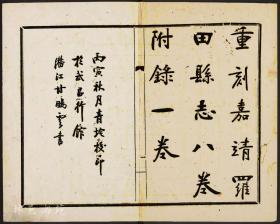 重刻嘉靖羅
田縣志八卷
附錄一卷
丙寅秋月青垞校印
於武昌行館
潛江甘鵬雲書